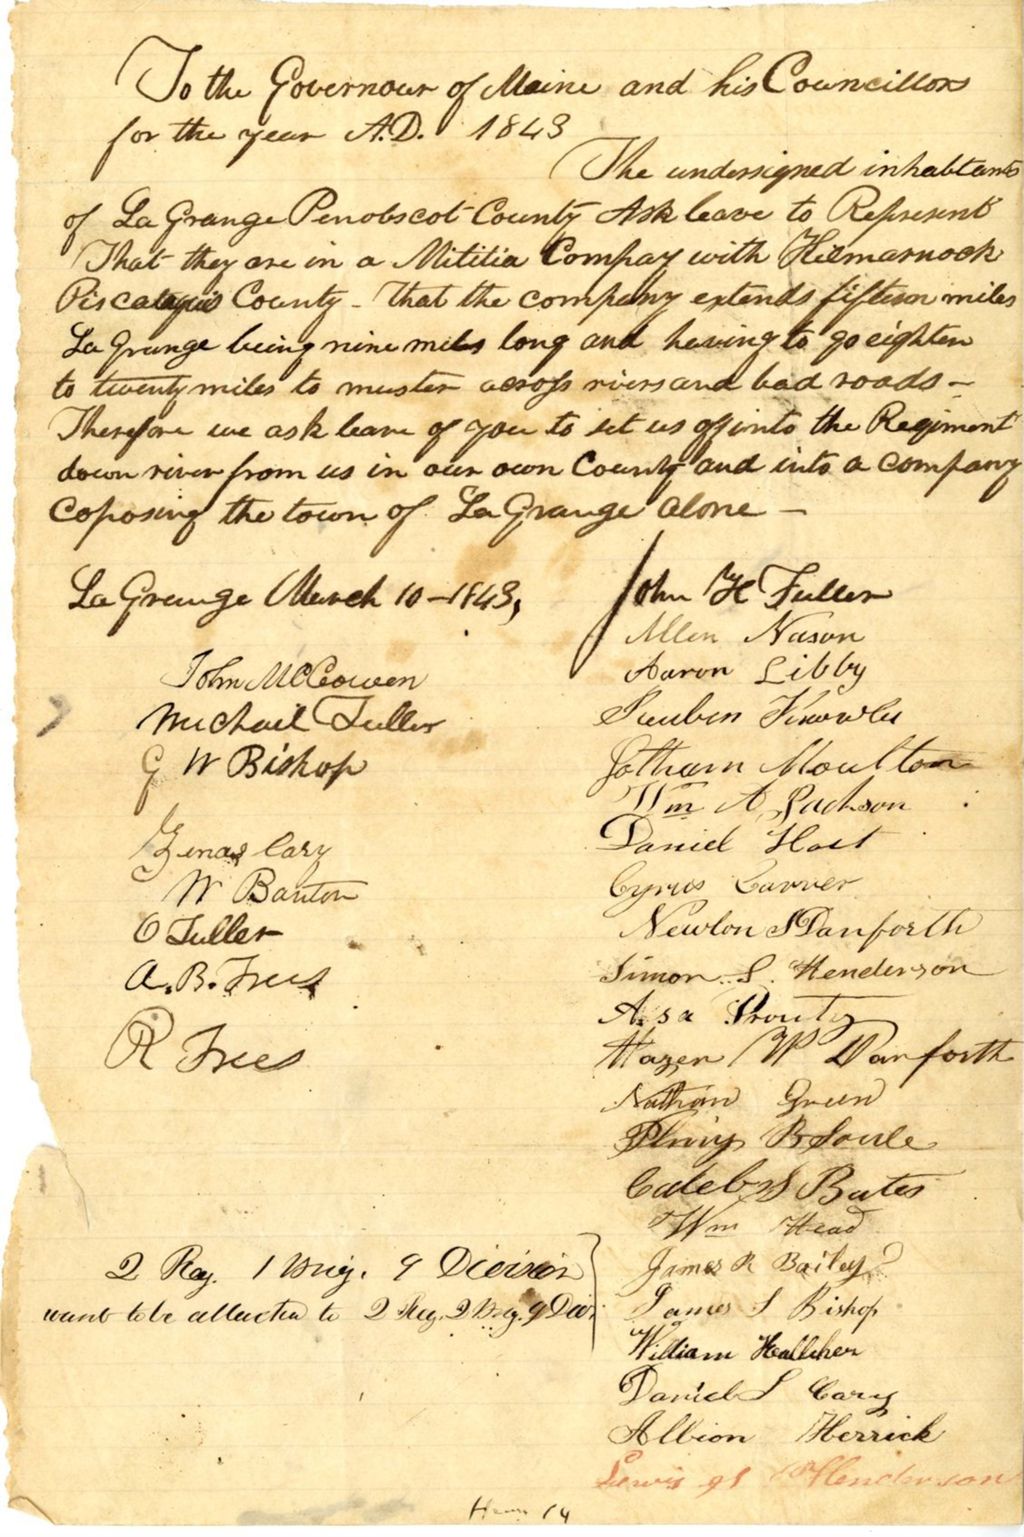 To the Governour of Maine and his Councillors
for the year A.D. 1843
The undersigned inhabtants
of La Grange Penobscot County Ask leave to Represent
That they are in a Mititia Compay with Kilmarnock
Piscataquis County - that the company extends fifteen miles
La Grange being nine miles long and having to go eighten
to twenty miles to muster across rivers and bad roads -
Therefore we ask leave of you to set us off into the Regiment
down river from us in our own County and into a company
Coposing the town of La Grange alone -
La Grange March 10 - 1843,
John H Fuller
Allen Nason
Aaron Libby
Reuben Knowles
Jotham Moulton
Wm A. Jackson
Daniel Hoit
Cyrus Carver
Newton S Danforth
Simon S. Henderson
Asa Prouty
Hazen W Danforth
Nathan Green
B Soule
Caleb S Bates
Wm Head
James R Bailey
James S Bishop
William Hallcher
Daniel S Cary
Albion Herrick
Lewis Henderson
John McCowen
Michail Fuller
G W Bishop
Zenas Cary
W Banton
O Fuller
A. B. Frees
R Frees
2 Reg. 1 Brig. 9 Division
want to be attached to 2 Reg. 2 Brig. 9 Divi